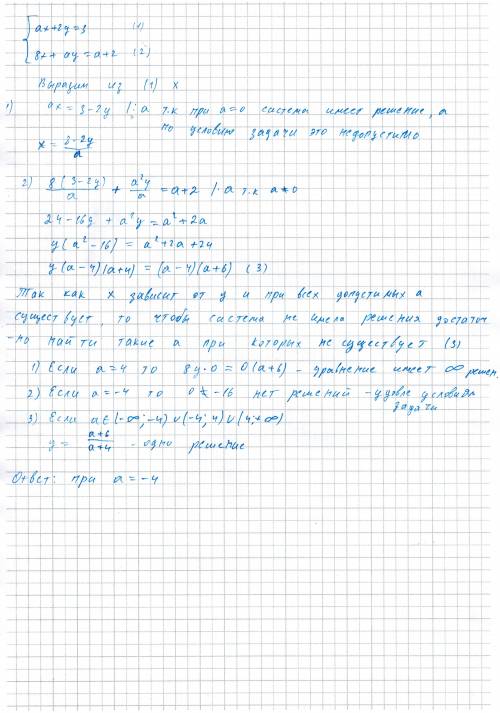 ax+2y=3 (1)
8x+ay=a+2 (2)
Выразим из (1) x
1) ax=3-2y |:a т.к при a=0 система имеет решение, а
по условию задачи это недопустимо
x = \frac{3-2y}{a}
2) \frac{8(3-2y)}{a} + \frac{a²y}{a} = a+2 |·a т.к a≠0
24-16y + a²y = a²+2a
y(a²-16) = a²+2a+24
y(a-4)(a+4) = (a-4)(a+6) (3)
Так как x зависит от y и при всех допустимых a
существует, то чтобы система не имела решения достаточ
-но найти такие a при которых не существует (3)
1) Если a=4 то 8y·0=0(a+6) - уравнение имеет ∞ решен.
2) Если a=-4 то 0≠-16 нет решений - удовле условию
задачи
3) Если a∈(-∞;-4)∪(-4;4)∪(4;+∞)
y = \frac{a+6}{a+4} - одно решение
Ответ: при a=-4